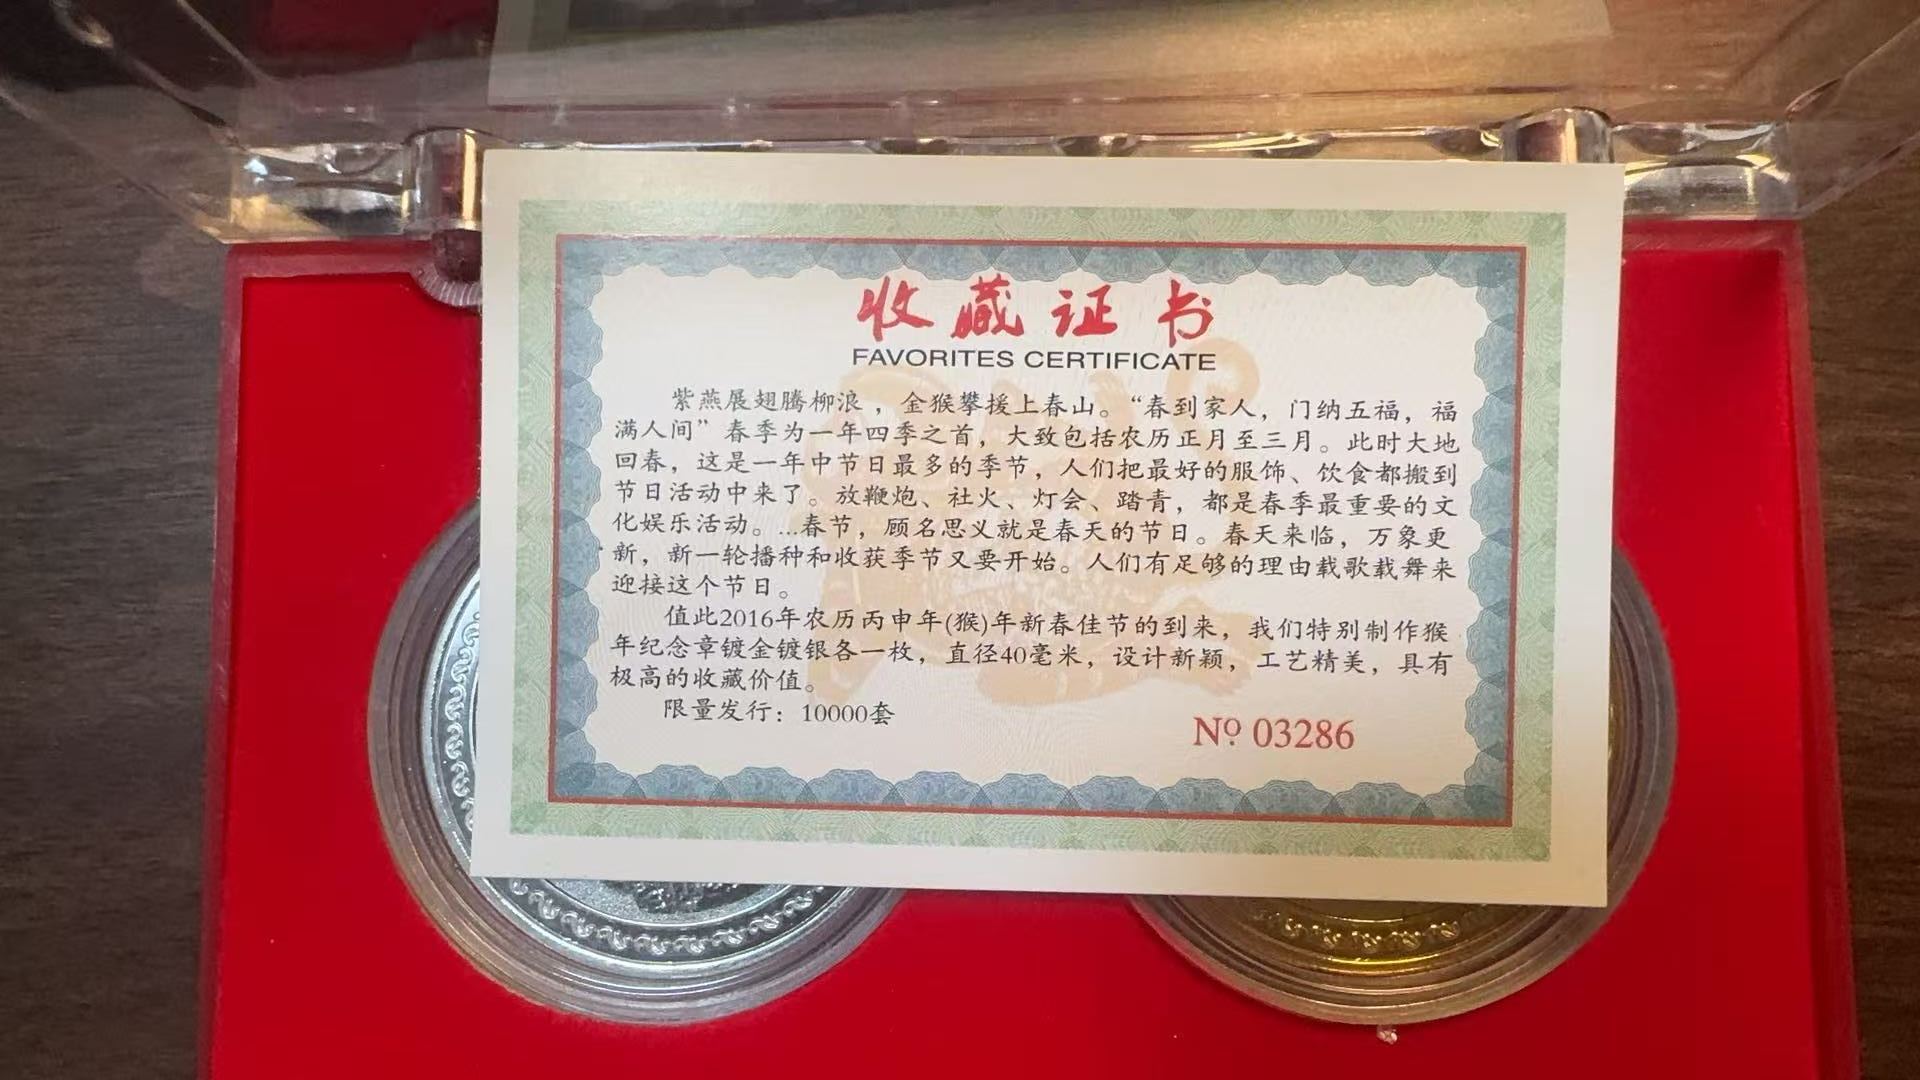 收藏证书
FAVORITES CERTIFICATE
紫燕展翅腾柳浪，金猴攀援上春山。“春到家人，门纳五福，福
满人间”春季为一年四季之首，大致包括农历正月至三月。此时大地
回春，这是一年中节日最多的季节，人们把最好的服饰、饮食都搬到
节日活动中来了。放鞭炮、社火、灯会、踏青，都是春季最重要的文
化娱乐活动。...春节，顾名思义就是春天的节日。春天来临，万象更
新，新一轮播种和收获季节又要开始。人们有足够的理由载歌载舞来
迎接这个节日。
值此2016年农历丙申年(猴)年新春佳节的到来，我们特别制作猴
年纪念章镀金镀银各一枚，直径40毫米，设计新颖，工艺精美，具有
极高的收藏价值。
限量发行：10000套
Nº 03286